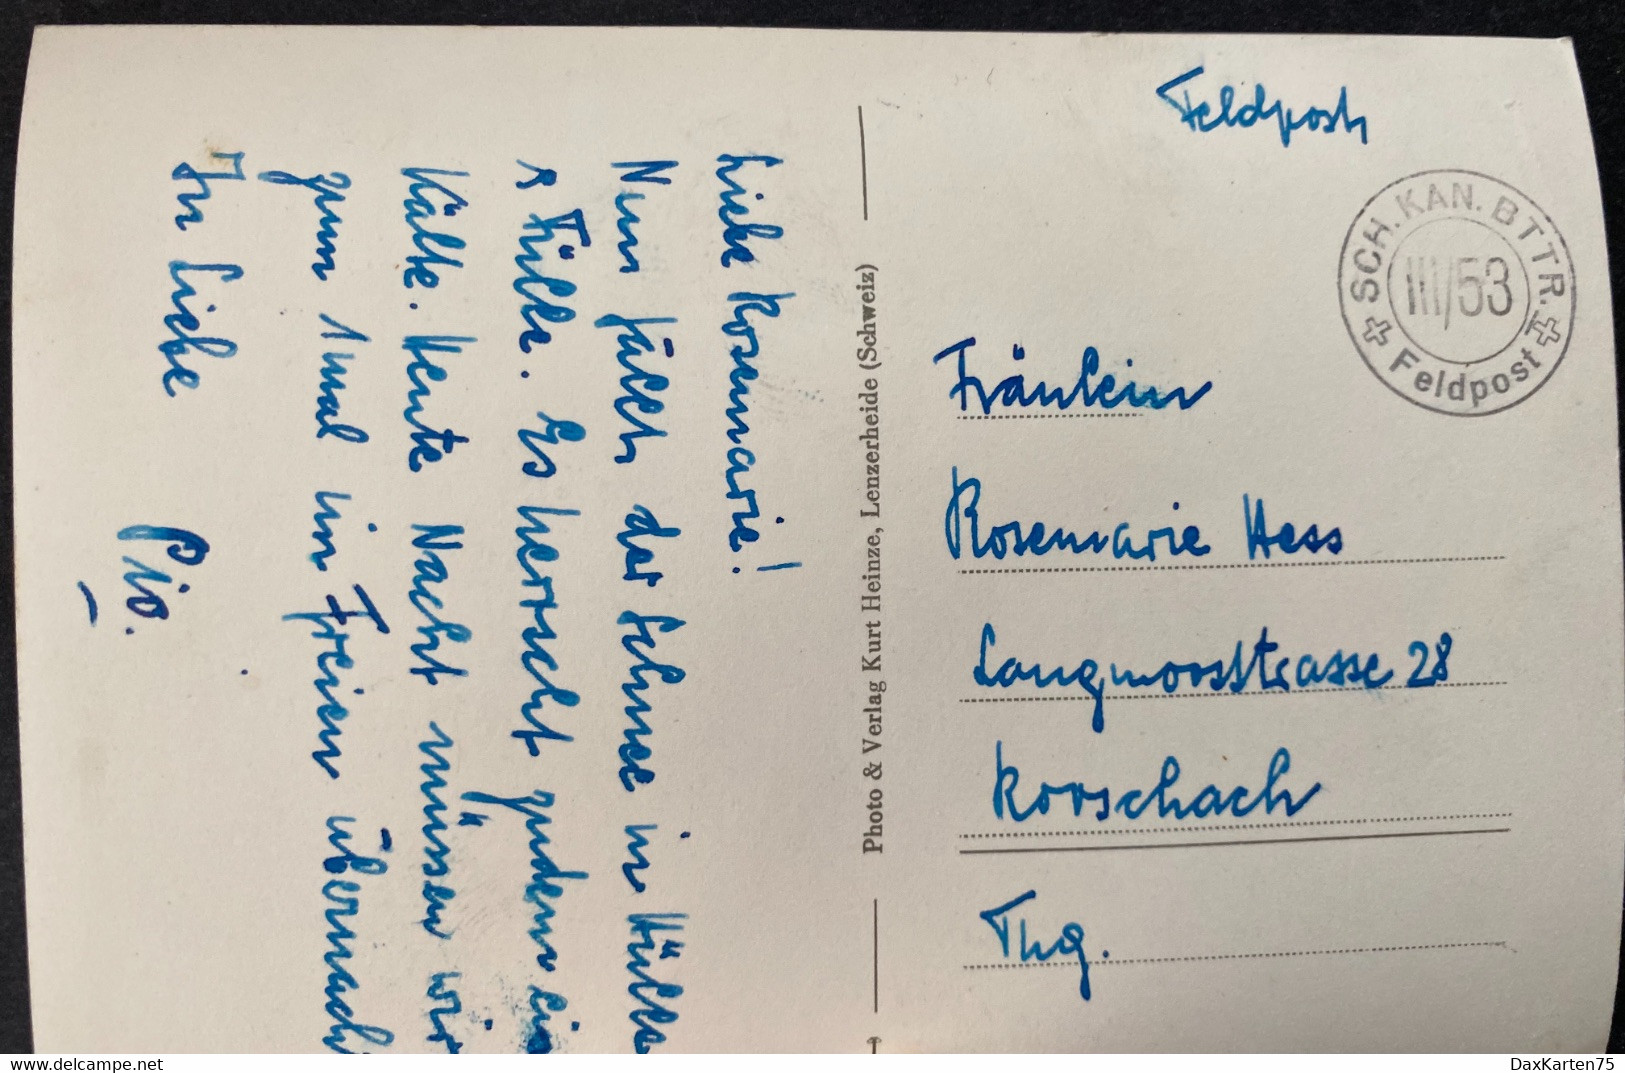 Feldpost
SCH. KAN. BTTR.
III/53
Feldpost
Fräulein
Rosemarie Hess
Langmoosstrasse 28
Rorschach
Thg.
Photo & Verlag Kurt Heinze, Lenzerheide (Schweiz)
Liebe Rosemarie!
Nun fällt der Schnee in Hülle
& Fülle. Es herrscht zudem ein
Kälte. Heute Nacht müssen wir
zum 1 mal im Freien übernach
In Liebe
Pio.
DaxKarten75